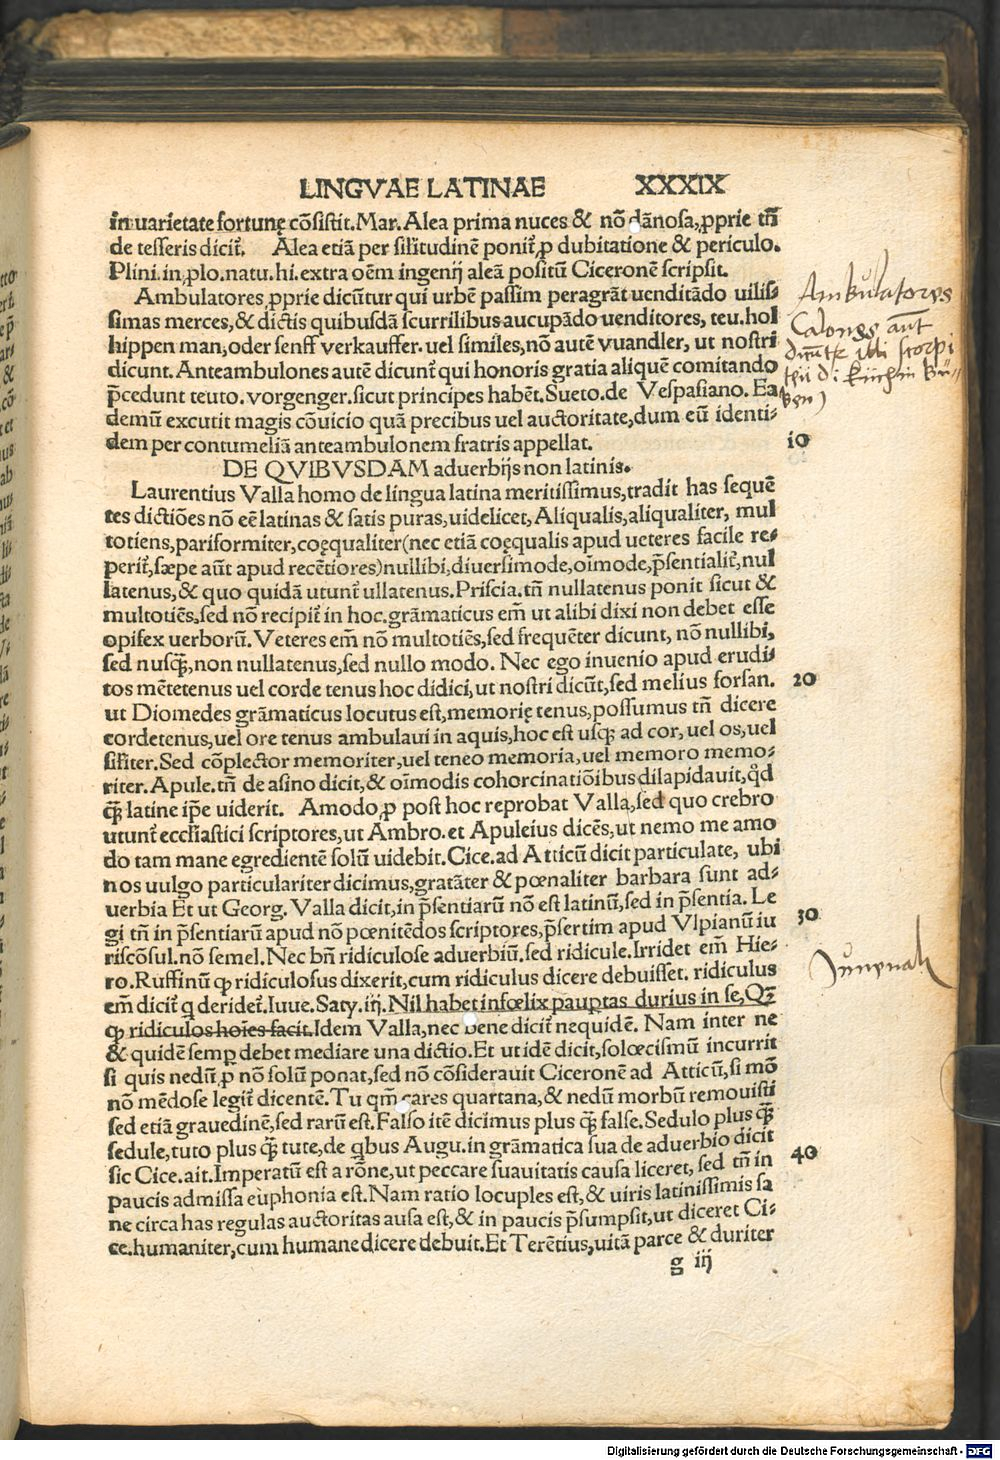 LINGVAE LATINAE XXXIX
in uarietate fortunę cõsistit. Mar. Alea prima nuces & nõ dãnosa, ꝓprie tñ
de tesseris dicit᷑. Alea etiã per silitudinẽ ponit᷑ ꝓ dubitatione & periculo.
Plini. in ꝓlo. natu. hi. extra oẽm ingenij aleã positũ Ciceronẽ scripsit.
Ambulatores ꝓprie dicũtur qui urbẽ passim peragrãt uenditãdo uilis⸗
simas merces, & dictis quibusdã scurrilibus aucupãdo uenditores, teu. hol
hippen man, oder senff verkauffer. uel similes, nõ autẽ vuandler, ut nostri
dicunt. Anteambulones autẽ dicunt᷑ qui honoris gratia aliquẽ comitando
p̃cedunt teuto. vorgenger. sicut principes habẽt. Sueto. de Vespasiano. Ea
demũ excutit magis cõuicio quã precibus uel auctoritate, dum eũ identi⸗
dem per contumeliã anteambulonem fratris appellat. 10
DE QVIBVSDAM aduerbijs non latinis.
Laurentius Valla homo de lingua latina meritissimus, tradit has sequẽ
tes dictiões nõ eẽ latinas & satis puras, uidelicet, Aliqualis, aliqualiter, mul
totiens, pariformiter, coęqualiter (nec etiã coęqualis apud ueteres facile re⸗
perit᷑, sæpe aũt apud recẽtiores) nullibi, diuersimode, oĩmode, p̃sentialit᷑, nul
latenus, & quo quidã utunt᷑ ullatenus. Priscia. tñ nullatenus ponit sicut &
multotiẽs, sed nõ recipit᷑ in hoc. grãmaticus em̃ ut alibi dixi non debet esse
opifex uerborũ. Veteres em̃ nõ multotiẽs, sed frequẽter dicunt, nõ nullibi,
sed nusꝗ̃, non nullatenus, sed nullo modo. Nec ego inuenio apud erudi⸗
tos mẽtetenus uel corde tenus hoc didici, ut nostri dicũt, sed melius forsan. 20
ut Diomedes grãmaticus locutus est, memorię tenus, possumus tñ dicere
cordetenus, uel ore tenus ambulaui in aquis, hoc est usq; ad cor, uel os, uel
sifiter. Sed cõplector memoriter, uel teneo memoria, uel memoro memo⸗
riter. Apule. tñ de asino dicit, & oĩmodis cohorcinatiõibus dilapidauit, qͦd
ꝗ̃ latine ip̃e uiderit. Amodo ꝓ post hoc reprobat Valla, sed quo crebro
utunt᷑ eccl̃iastici scriptores, ut Ambro. et Apuleius dicẽs, ut nemo me amo
do tam mane egredientẽ solũ uidebit. Cice. ad Atticũ dicit particulate, ubi
nos uulgo particulariter dicimus, gratãter & pœnaliter barbara sunt ad⸗
uerbia Et ut Georg. Valla dicit, in p̃sentiarũ nõ est latinũ, sed in p̃sentia. Le
gi tñ in p̃sentiarũ apud nõ pœnitẽdos scriptores, p̃sertim apud Vlpianũ iu 30
riscõsul. nõ semel. Nec bñ ridiculose aduerbiũ, sed ridicule. Irridet em̃ Hie⸗
ro. Ruffinũ ꝙ ridiculosus dixerit, cum ridiculus dicere debuisset. ridiculus
em̃ dicit᷑ q deridet᷑. Iuue. Saty. iij. Nil habet infœlix paup̱tas durius in se, Qȝ̃
ꝙ ridiculos hoĩes facit. Idem Valla, nec bene dicit᷑ nequidẽ. Nam inter ne
& quidẽ semp̱ debet mediare una dictio. Et ut idẽ dicit, solœcismũ incurrit
si quis nedũ, ꝓ nõ solũ ponat, sed nõ cõsiderauit Ciceronẽ ad Atticũ, si mõ
nõ mẽdose legit᷑ dicentẽ. Tu qm̃ cares quartana, & nedũ morbũ remouisti
sed etiã grauedinẽ, sed rarũ est. Falso itẽ dicimus plus ꝗ̃ false. Sedulo plus ꝗ̃
sedule, tuto plus ꝗ̃ tute, de qbus Augu. in grãmatica sua de aduerbio dicit
sic Cice. ait. Imperatũ est a rõne, ut peccare suauitatis causa liceret, sed tñ in 40
paucis admissa euphonia est. Nam ratio locuples est, & uiris latinissimis sa
ne circa has regulas auctoritas ausa est, & in paucis p̃sumpsit, ut diceret Ci⸗
ce. humaniter, cum humane dicere debuit. Et Terẽtius, uitã parce & duriter
g iij
Ambulatores
Calones aũt
dicũtr illi
Juuenal
Digitalisierung gefördert durch die Deutsche Forschungsgemeinschaft - DFG